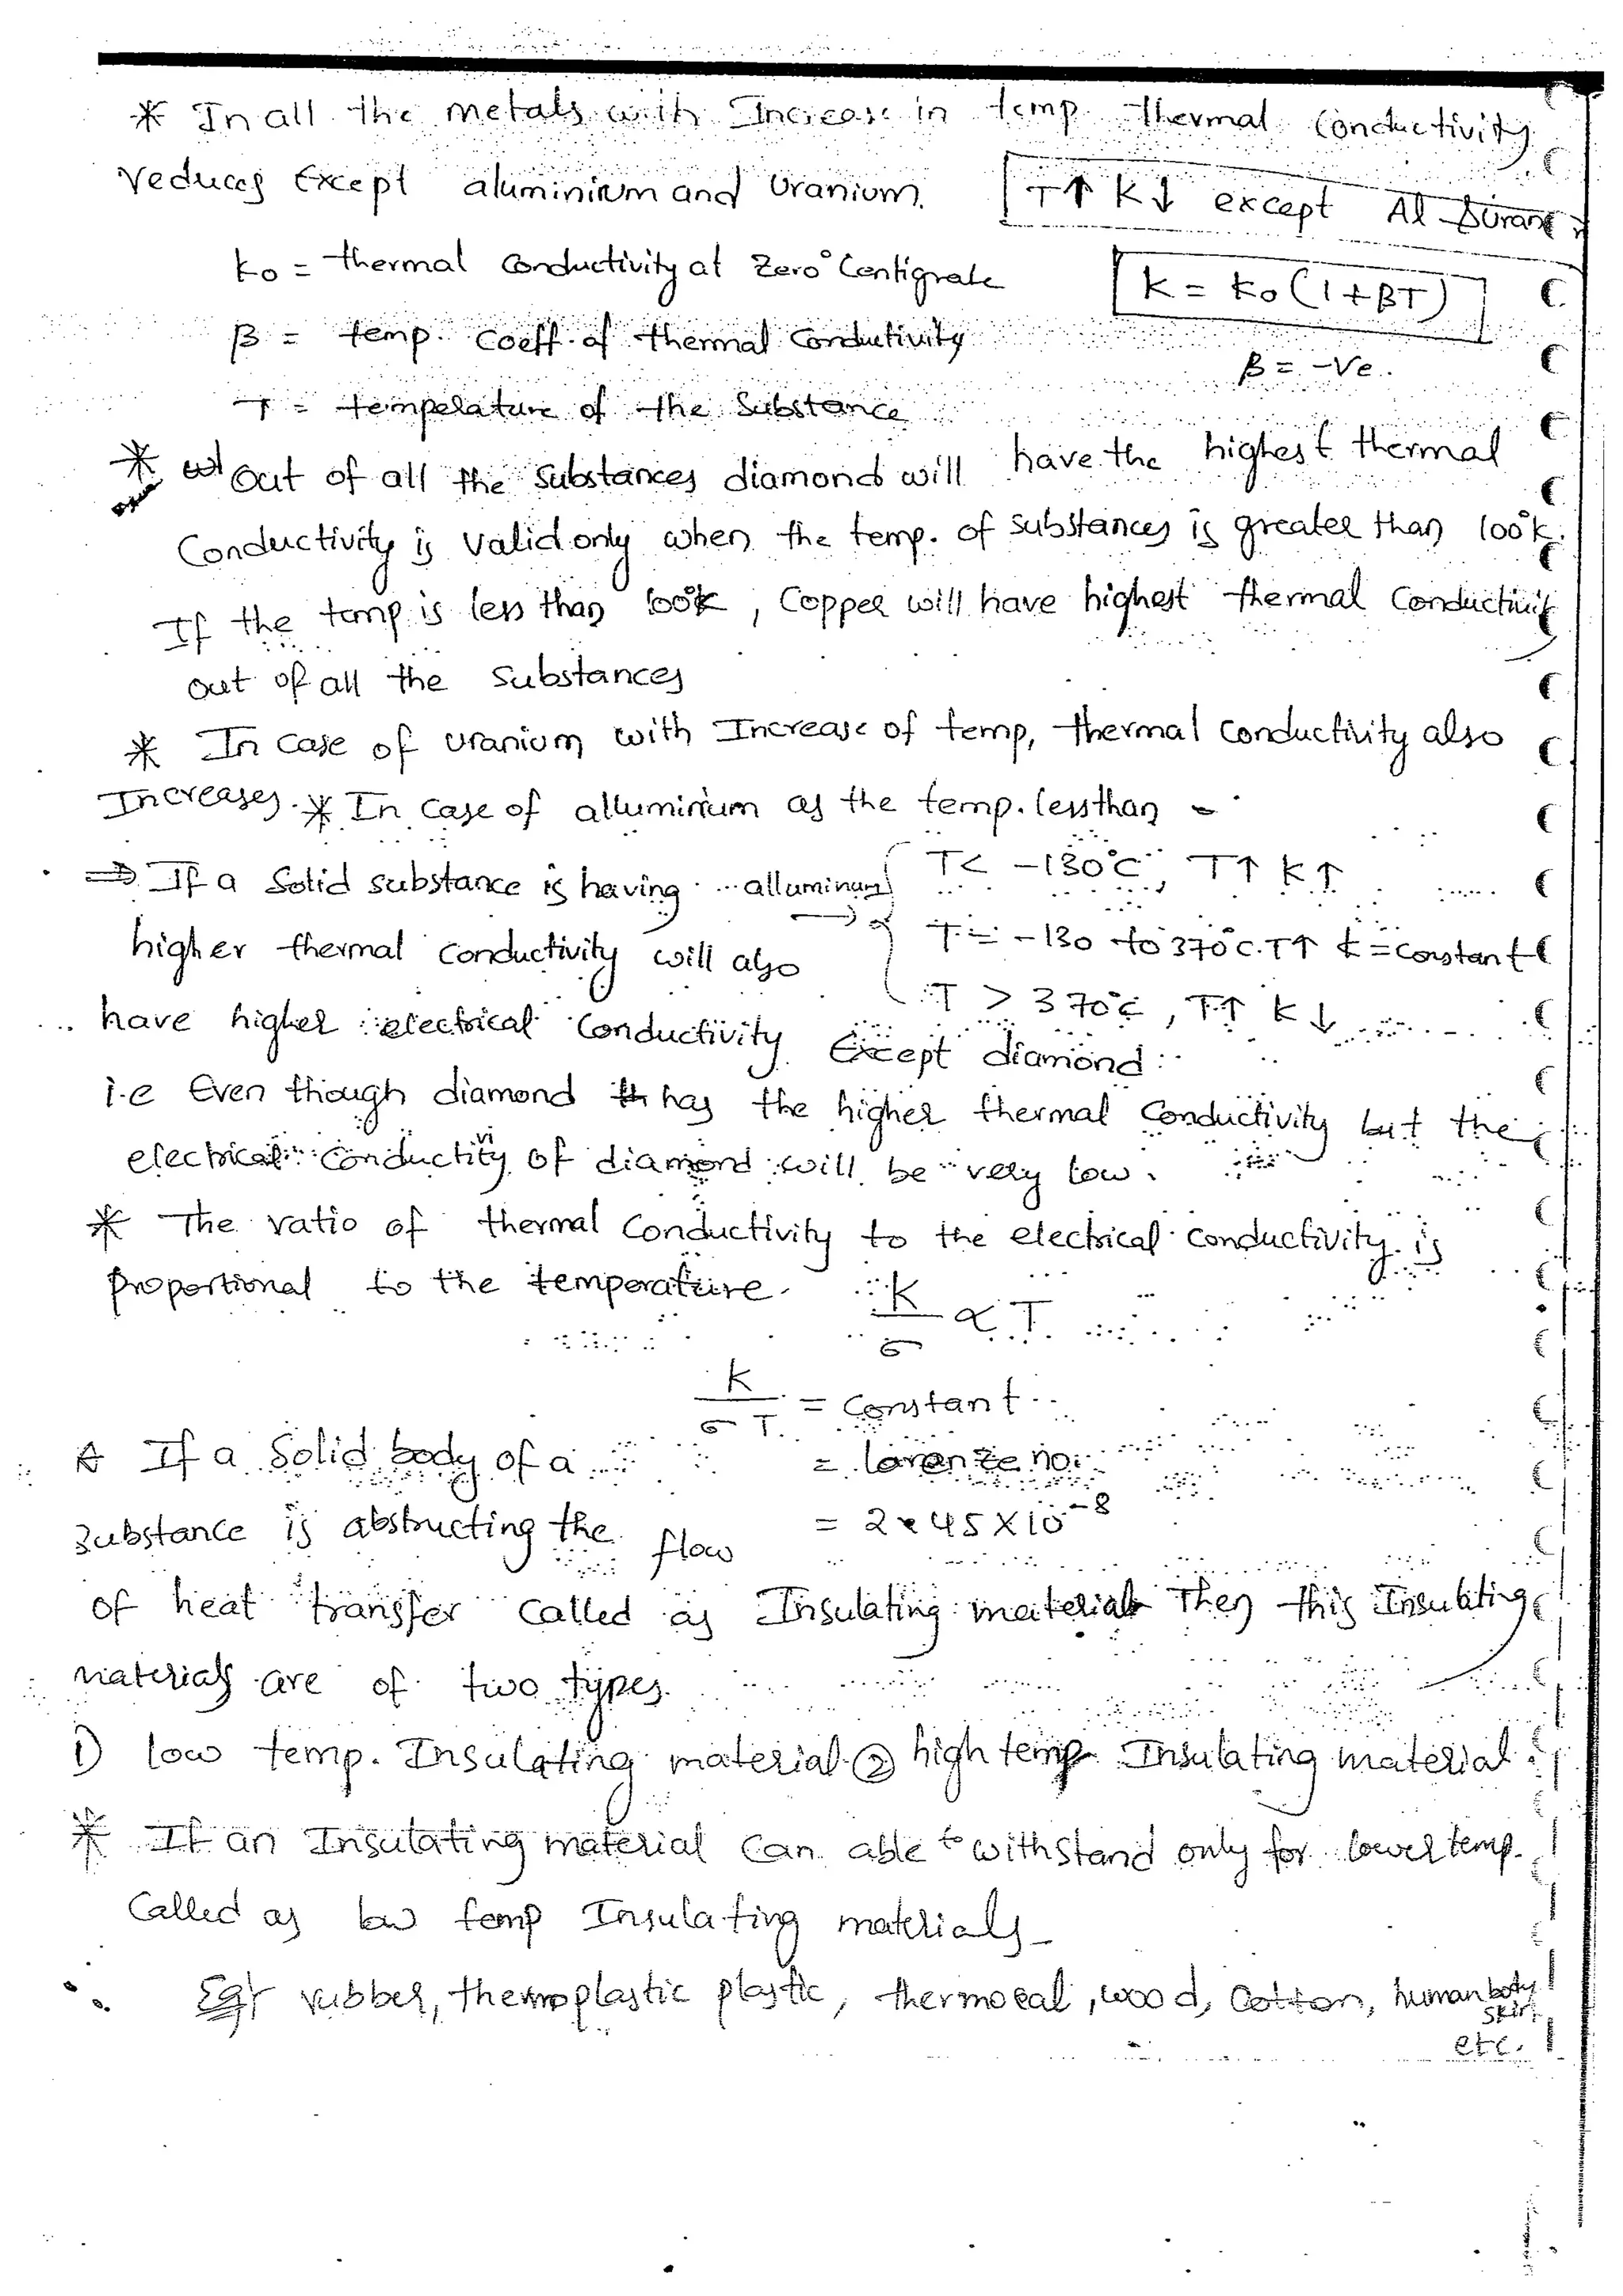 * In all the metals with Increase in temp. thermal conductivity
reduces Except aluminium and Uranium. T↑ K↓ except Al & Uranium
k₀ = thermal conductivity at zero° Centigrate K = k₀(1+βT)
β = temp. coeff. of thermal conductivity β = -Ve.
T = temperature of the substance
* Out of all the substances diamond will have the highest thermal
Conductivity is valid only when the temp. of substances is greater than 100°k.
If the temp is less than 100°k, Copper will have highest thermal Conductivit
out of all the substances
* In case of uranium with Increase of temp, thermal conductivity also
Increases. * In case of alluminium as the temp. lessthan -
⇒ If a Solid substance is having alluminum T< -130°C, T↑ K↑
higher thermal conductivity will also → T = -130 to 370°C. T↑ k = constant
T > 370°C, T↑ K↓
have higher electrical conductivity Except diamond.
i.e Even though diamond has the higher thermal conductivity but the
electrical conductivity of diamond will be very low.
* The ratio of thermal conductivity to the electrical conductivity is
proportional to the temperature. K/σ ∝ T.
k/σT = constant
* If a Solid body of a = lorenze no.
substance is abstructing the flow = 2.45 X 10⁻⁸
of heat transfer called as Insulating materials Then this Insulating
materials are of two types.
1) low temp. Insulating material ② high temp Insulating material.
* If an Insulating material can able to withstand only for lower temp.
Called as low temp Insulating materials
Eg:- rubber, thermoplastic plastic, thermocal, wood, Cotton, human body
skin
etc.